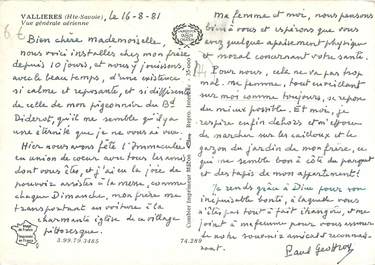 VALLIERES (Hte-Savoie), le 16-8-81
Vue générale aérienne
6 €
Bien chère mademoiselle,
nous voici installés chez mon frère
depuis 10 jours, et nous y jouissons,
avec le beau temps, d'une existence
si calme et reposante, et si différente
de celle de mon pigeonnier du Bd
Diderot, qu'il me semble qu'il y a
une éternité que je ne vous ai vue.
Hier nous avons fêté l'Immaculée
en union de coeur avec tous les amis
dont vous êtes, et j'ai eu la joie de
pouvoir assister à la messe, comme
chaque Dimanche, mon frère me
transportant en voiture à la
charmante église de ce village
pittoresque.
3.99.79.3465
74.289
Combier Imprimeur Mâcon
ma femme et moi, nous pensons
bien à vous et espérons que vous
avez quelque apaisement physique
et moral concernant votre santé.
Pour nous, cela ne va pas trop
mal, ma femme, tout en veillant
sur moi comme toujours, se repose
du mieux possible. Et moi, je
respire enfin dehors et m'efforce
de marcher sur les cailloux et le
gazon du jardin de mon frère, ce
qui me semble bon à côté du parquet
et des tapis de mon appartement!
Je rends grâce à Dieu pour son
inépuisable bonté, à laquelle vous
n'êtes pas tout à fait étrangère, et me
joint à ma femme pour vous assurer
de notre souvenir amical et reconnais-
sant.
Paul Geoffroy